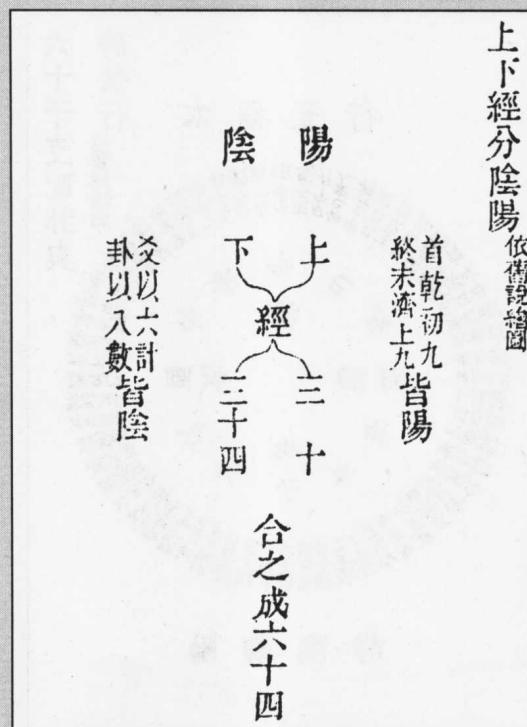 上下經分陰陽
依舊說繪圖
首乾初九
終未濟上九
皆陽
陽
陰
上
下
經
三十
三十四
合之成六十四
爻以六計
卦以八數
皆陰